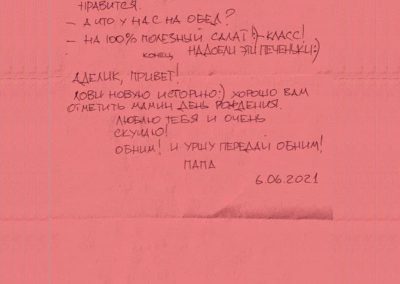 НРАВИТСЯ.
– А ЧТО У НАС НА ОБЕД?
– НА 100% ПОЛЕЗНЫЙ САЛАТ!)–КЛАСС!
КОНЕЦ НАДОЕЛИ ЭТИ ПЕЧЕНЬКИ:)
АДЕЛИК, ПРИВЕТ!
ЛОВИ НОВУЮ ИСТОРИЮ:) ХОРОШО ВАМ
ОТМЕТИТЬ МАМИН ДЕНЬ РОЖДЕНИЯ.
ЛЮБЛЮ ТЕБЯ И ОЧЕНЬ
СКУЧАЮ!
ОБНИМ! И УРШУ ПЕРЕДАЙ ОБНИМ!
ПАПА
6.06.2021